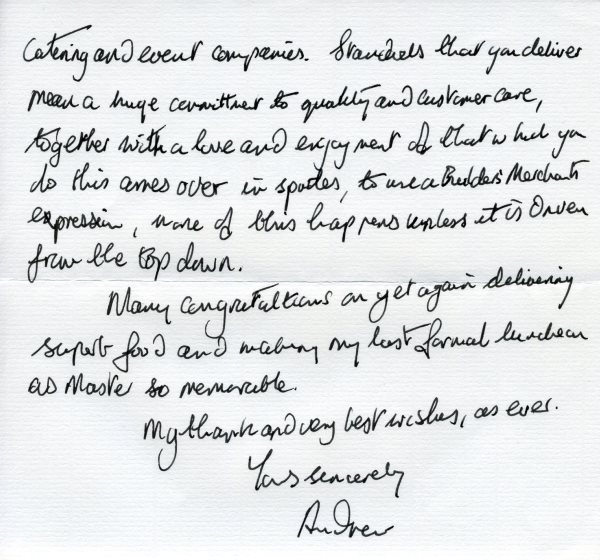 Catering and event companies. Standards that you deliver
mean a huge committment to quality and customer care,
together with a love and enjoyment of that which you
do this comes over in spades, to use a Builders Merchants
expression, none of this happens unless it is driven
from the top down.
Many congratulations on yet again delivering
superb food and making my last formal luncheon
as Master so memorable.
My thanks and very best wishes, as ever.
Yours sincerely
Andrew